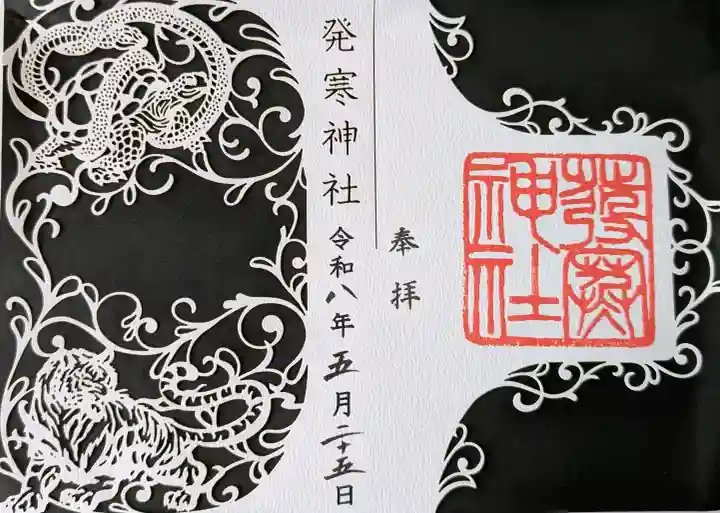 奉拝
発寒神社
発寒神社 令和八年五月二十五日